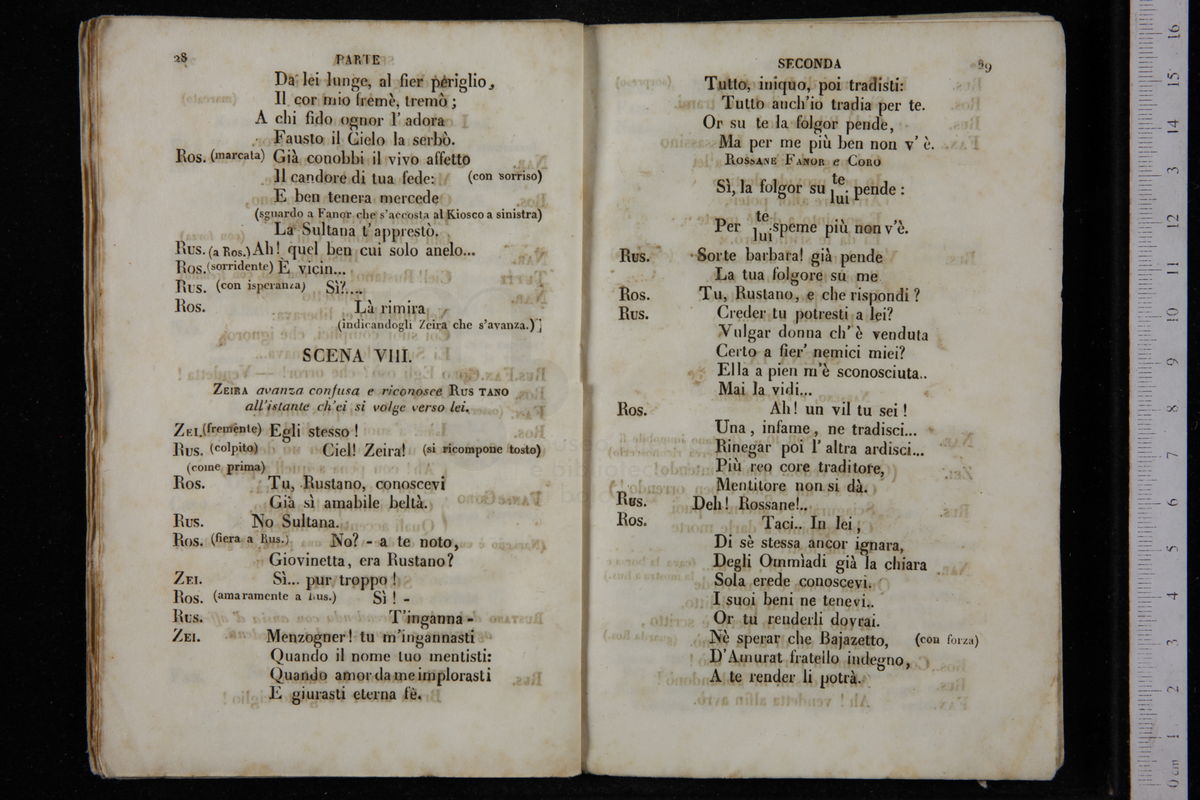 28 PARTE
Da lei lunge, al fier periglio,
Il cor mio fremè, tremò;
A chi fido ognor l'adora
Fausto il Cielo la serbò.
Ros. (marcata) Già conobbi il vivo affetto
Il candore di tua fede: (con sorriso)
E ben tenera mercede
(sguardo a Fanor che s'accosta al Kiosco a sinistra)
La Sultana t'apprestò.
Rus. (a Ros.) Ah! quel ben cui solo anelo...
Ros. (sorridente) È vicin...
Rus. (con isperanza) Sì?....
Ros. Là rimira
(indicandogli Zeira che s'avanza.)
SCENA VIII.
ZEIRA avanza confusa e riconosce RUS TANO
all'istante ch'ei si volge verso lei.
ZEI. (fremente) Egli stesso!
Rus. (colpito) Ciel! Zeira! (si ricompone tosto)
(come prima)
Ros. Tu, Rustano, conoscevi
Già sì amabile beltà.
Rus. No Sultana.
Ros. (fiera a Rus.) No? - a te noto,
Giovinetta, era Rustano?
ZEI. Sì... pur troppo!
Ros. (amaramente a Rus.) Sì! -
Rus. T'inganna -
ZEI. Menzogner! tu m'ingannasti
Quando il nome tuo mentisti:
Quando amor da me implorasti
E giurasti eterna fè.
SECONDA 29
Tutto, iniquo, poi tradisti:
Tutto anch'io tradia per te.
Or su te la folgor pende,
Ma per me più ben non v'è.
ROSSANE FANOR e CORO
Sì, la folgor su te lui pende:
Per te lui speme più non v'è.
Rus. Sorte barbara! già pende
La tua folgore su me
Ros. Tu, Rustano, e che rispondi?
Rus. Creder tu potresti a lei?
Vulgar donna ch'è venduta
Certo a fier' nemici miei?
Ella a pien m'è sconosciuta..
Mai la vidi...
Ros. Ah! un vil tu sei!
Una, infame, ne tradisci...
Rinegar poi l'altra ardisci...
Più reo core traditore,
Mentitore non si dà.
Rus. Deh! Rossane!..
Ros. Taci.. In lei,
Di sè stessa ancor ignara,
Degli Ommìadi già la chiara
Sola erede conoscevi.
I suoi beni ne tenevi..
Or tu renderli dovrai.
Nè sperar che Bajazetto, (con forza)
D'Amurat fratello indegno,
A te render li potrà.